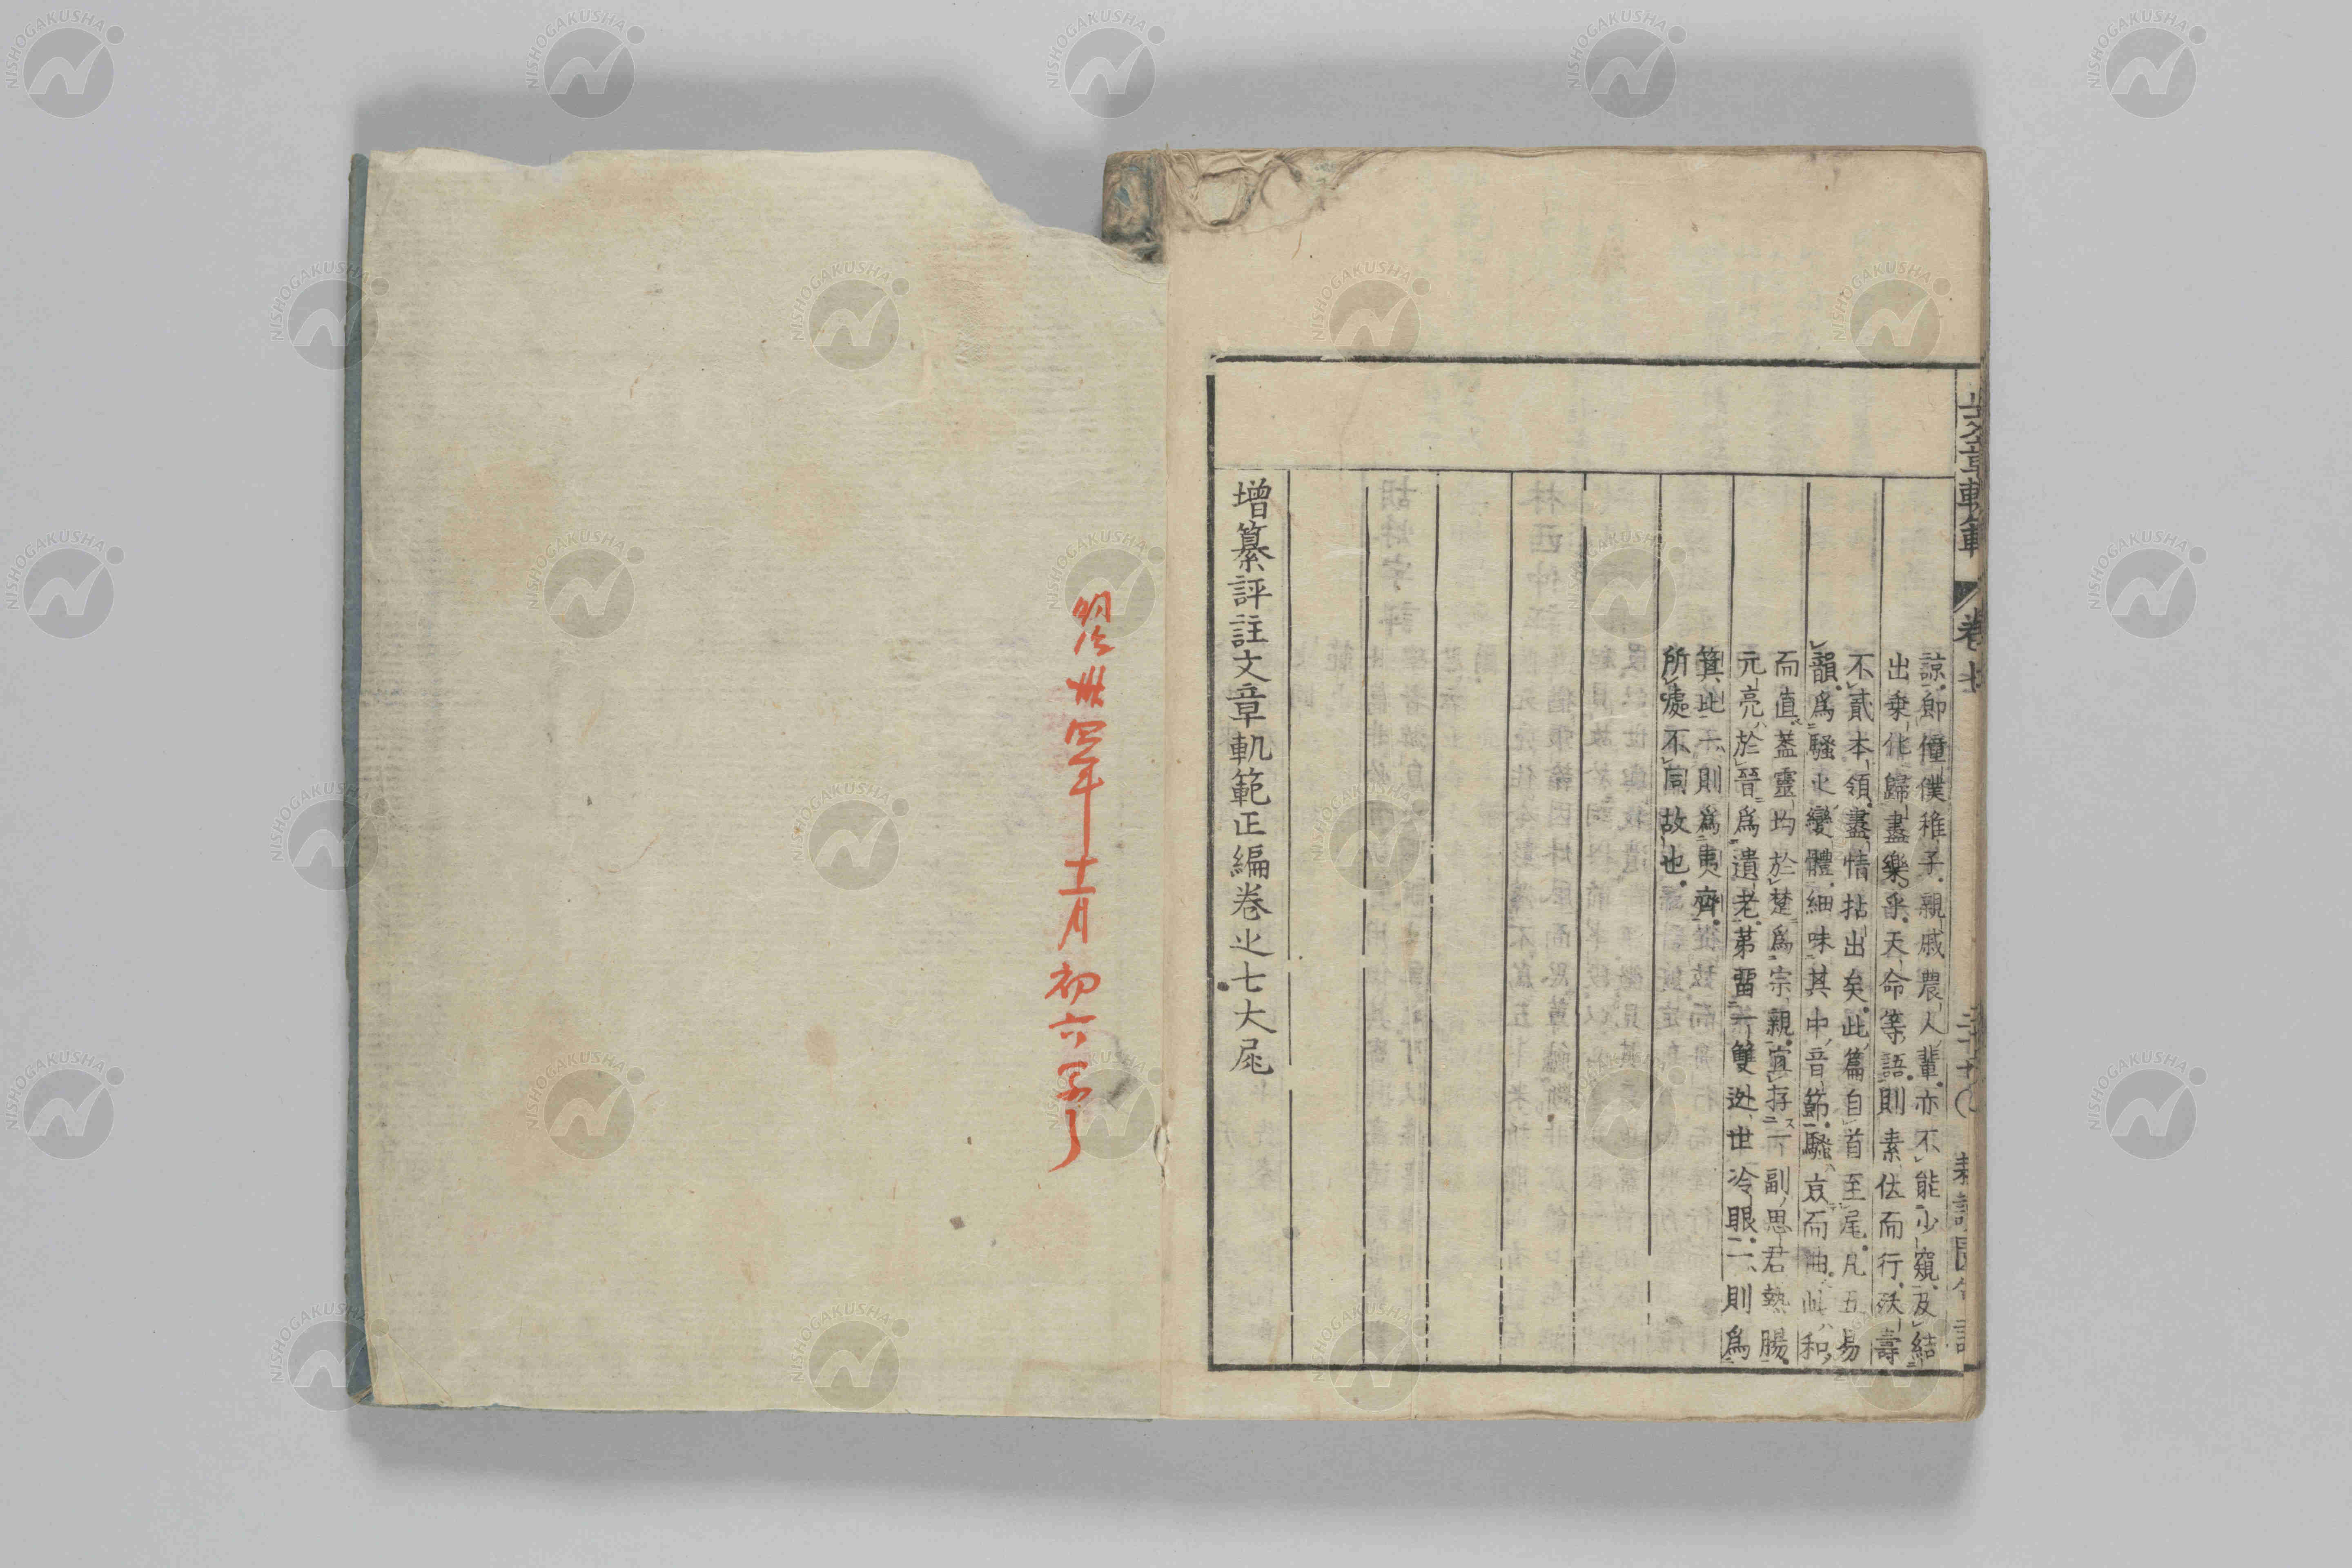 諒。卽僮僕稚子。親戚農人輩。亦不能少窺。及結
出乗化歸盡。樂乎天命等語。則素位而行。殀壽
不貳本領。盡情拈出矣。此篇自首至尾。凡五易
韻。爲騷之變體。細味其中音節。騷哀而曲。此和
而値。蓋靈均於楚爲宗親。宜存一副思君熱腸。
元亮於晉爲遺老。第留一雙逃世冷眼。二則爲
箕比。則爲夷齊。
所處不同故也。
增纂評註文章軌範正編卷之七大尾
卷七
年十一月初六
NISHOGAKUSHA